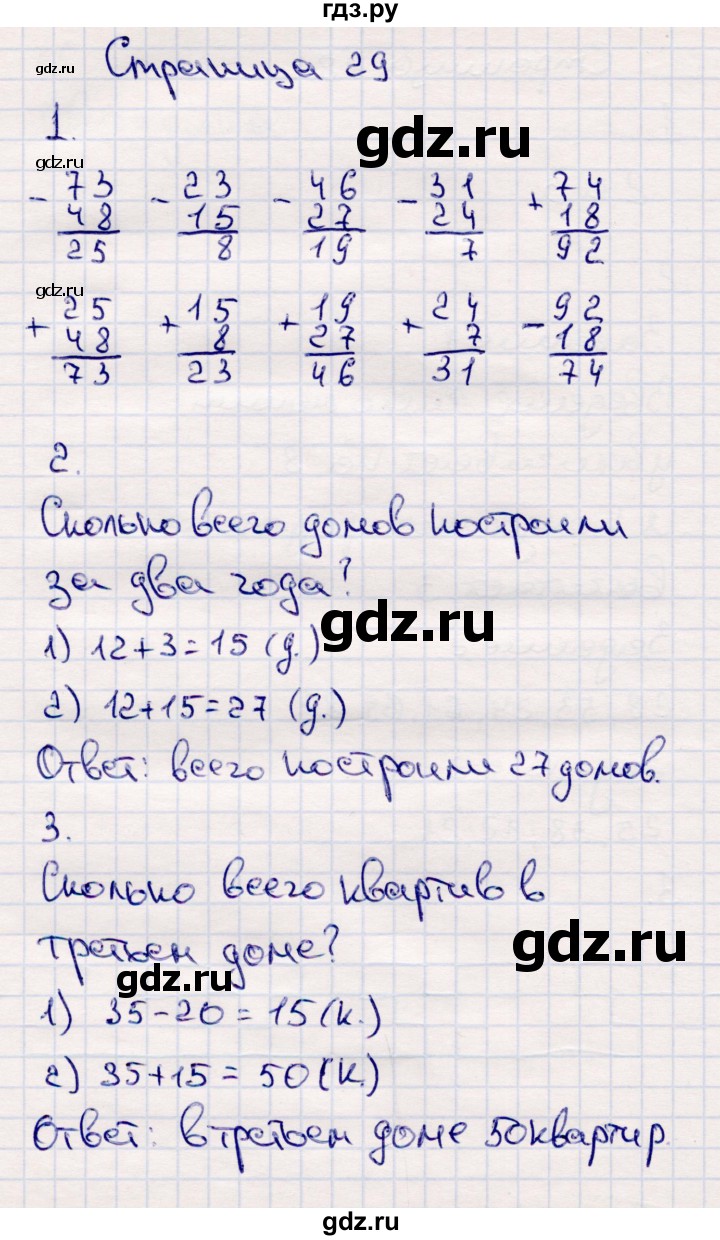 гдз.ру
gdz.ru
Страница 29
1.
gdz.ru
gdz.ru
- 73 - 23 - 46 - 31 + 74
48 15 27 24 18
25 8 19 7 92
gdz.ru
+ 25 + 15 + 19 + 24 - 92
48 8 27 7 18
73 23 46 31 74
2.
Сколько всего домов построили
за два года?
gdz.ru
1) 12+3=15 (д.)
2) 12+15=27 (д.)
Ответ: всего построили 27 домов.
3.
Сколько всего квартир в
gdz.ru
третьем доме?
gdz.ru
1) 35-20=15(к.)
2) 35+15=50(к.)
Ответ: в третьем доме 50 квартир.
gdz.ru